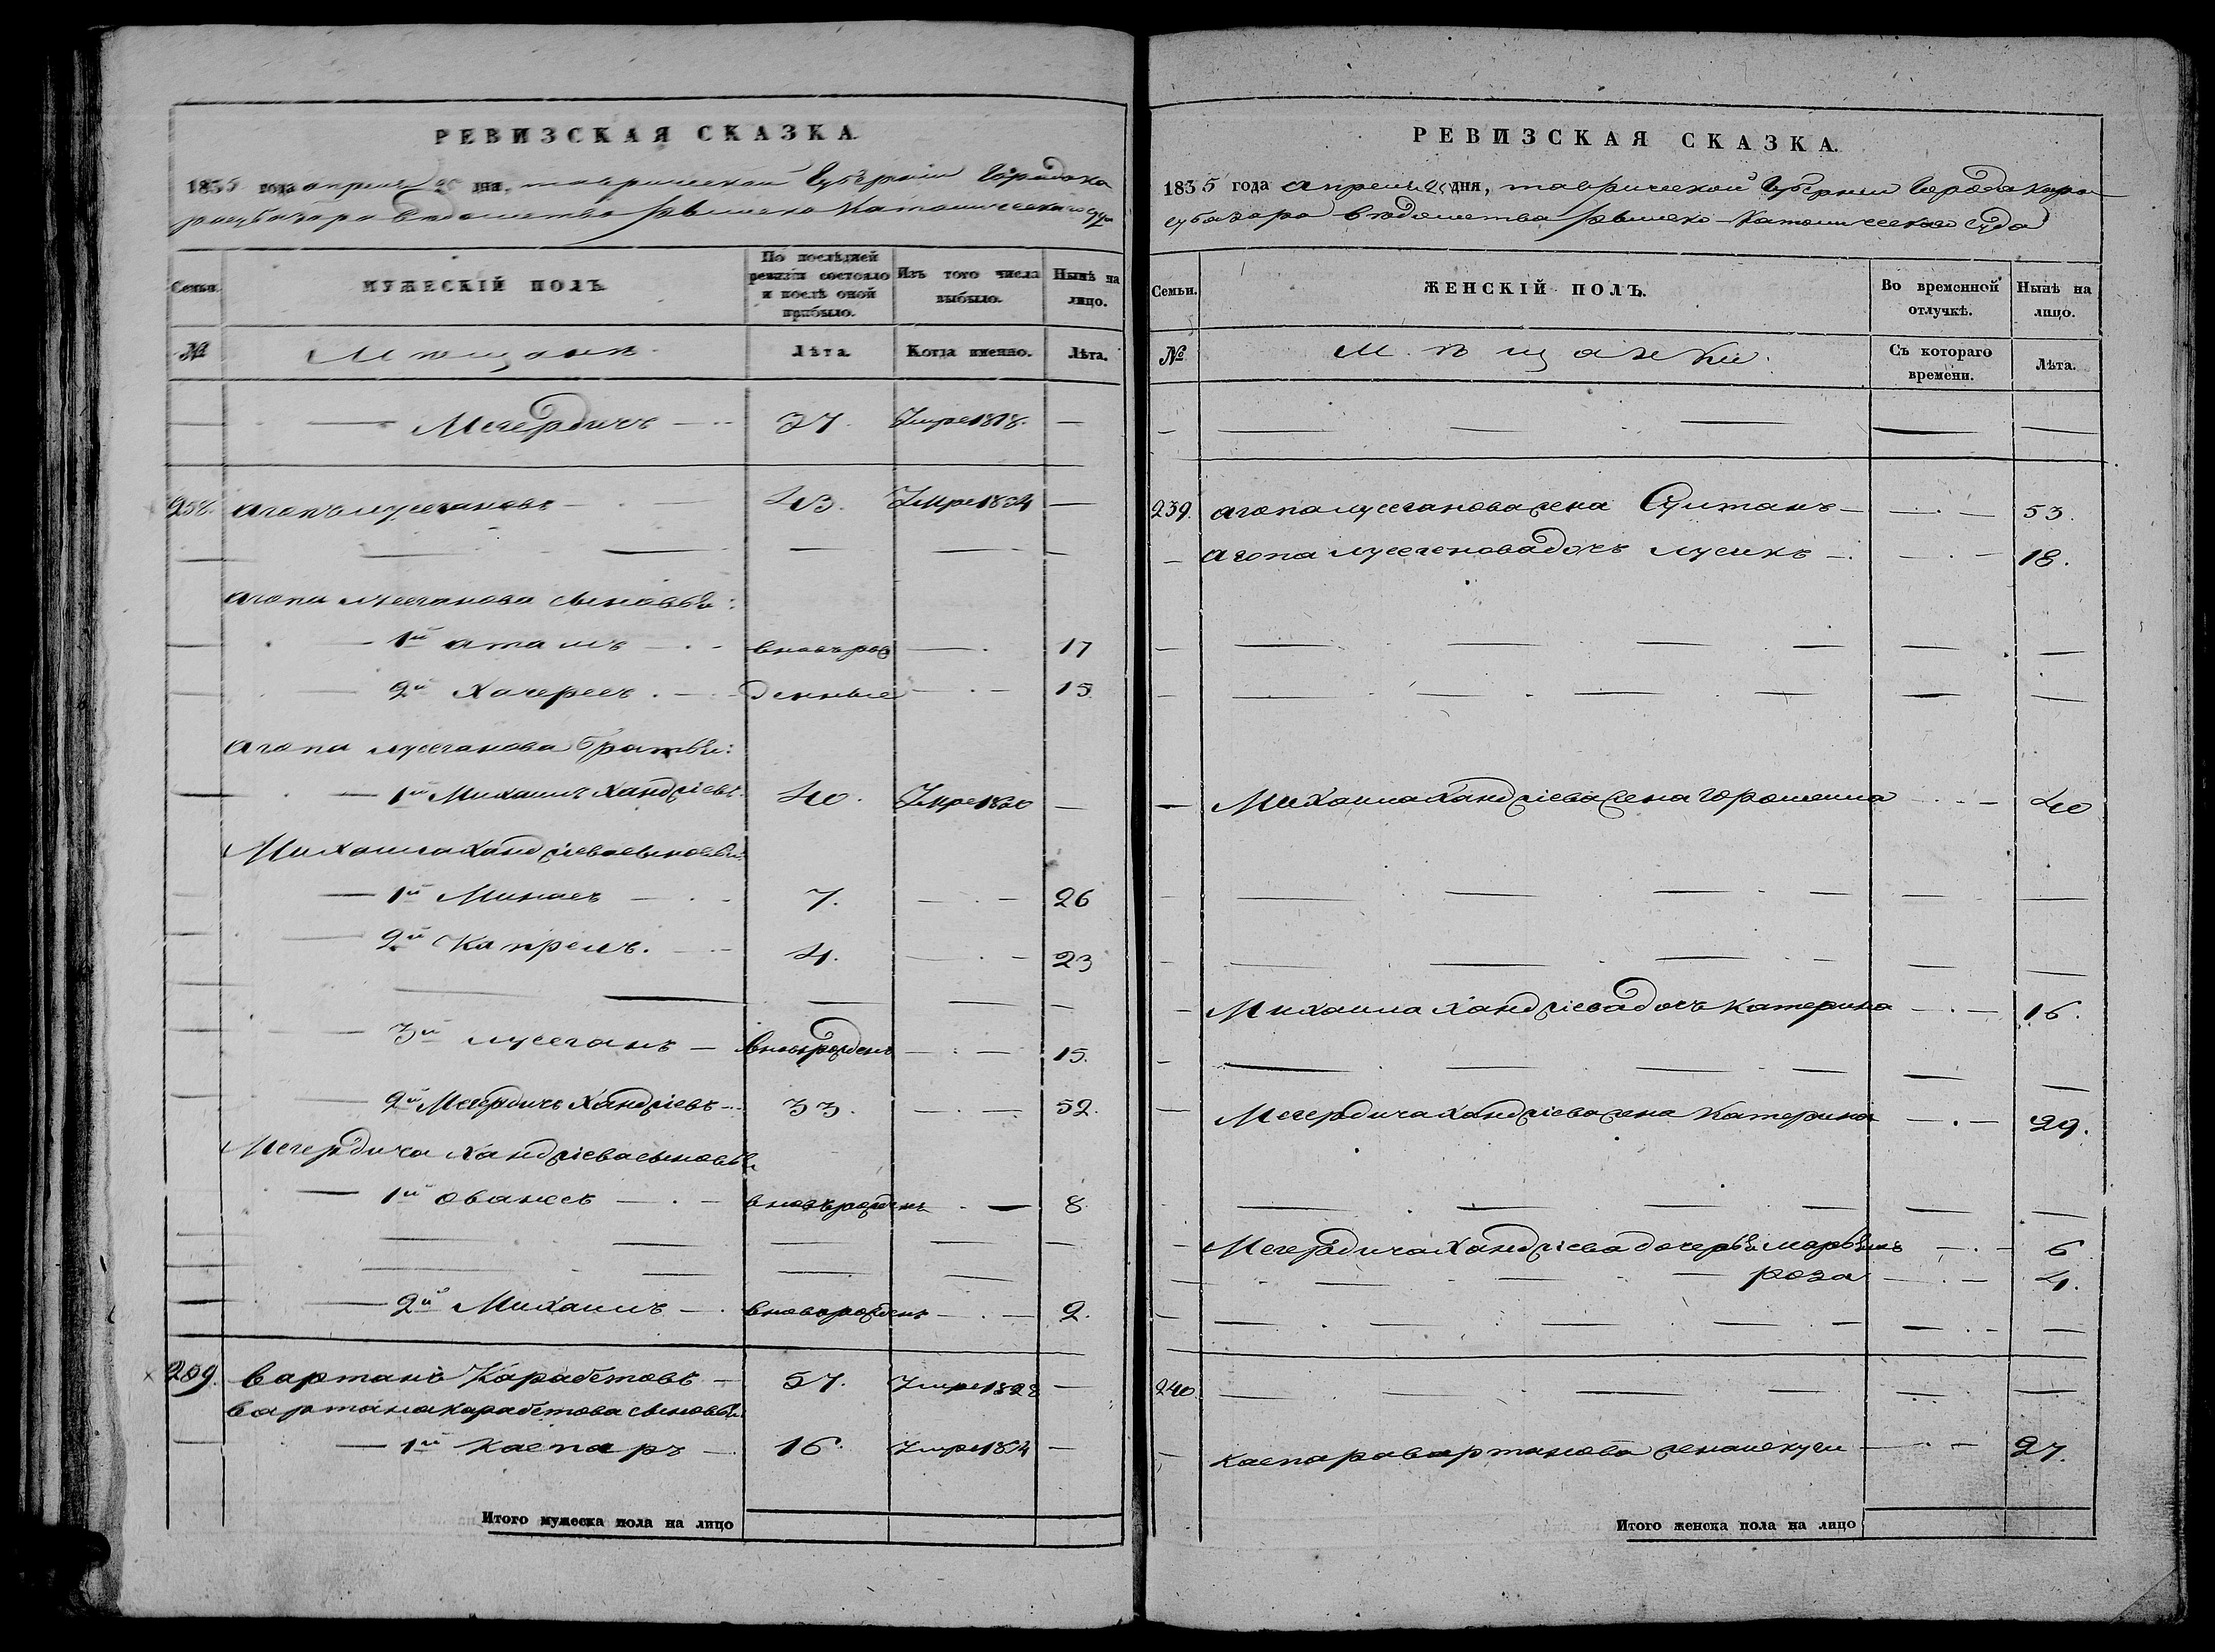 РЕВИЗСКАЯ СКАЗКА.
1835 года апреля 26 дня, таврической Губернии Города Ка
расубазара ведомства Римско Католическаго Суда
Семьи. МУЖЕСКІЙ ПОЛЪ. По послѣдней ревизіи состояло и послѣ оной прибыло. Изъ того числа выбыло. Нынѣ на лицо.
№ Мѣщане Лѣта. Когда именно. Лѣта.
— Мегердичъ — 27. Умре 1818. —
258. Агопъ Мусегановъ — 43. Умре 1834 —
Агопа Мусеганова сыновья:
— 1й Атамъ — вновьрож — 17
— 2й Хачересъ — денные — 15
Агопа Мусеганова братья:
— 1й Михаилъ Ханджіевъ 40. Умре 1820 —
Михаила Ханджіева сыновья
— 1й Минасъ — 7. — 26
— 2й Капрелъ. — 4. — 23
— 3й Мусеганъ — вновьрожденъ — 15.
— 2й Мегердичъ Ханджіевъ — 33. — 52.
Мегердича Ханджіева сыновья
— 1й Ованесъ — вновьрожденъ — 8
— 2й Михаилъ — вноворожденъ — 2.
259. Вартанъ Карабетовъ — 57. Умре 1828 —
Вартана Карабетова сыновья
— 1й Каспаръ — 16. Умре 1834 —
Итого мужеска пола на лицо
РЕВИЗСКАЯ СКАЗКА.
1835 года апреля 26 дня, таврической Губернии Города Кара
субазара ведомства Римско-Католическаго Суда
Семьи. ЖЕНСКІЙ ПОЛЪ. Во временной отлучкѣ. Нынѣ на лицо.
№ Мѣщанки. Съ котораго времени. Лѣта.
239. Агопа Мусеганова жена Султанъ — 53.
— Агопа Мусегенова дочь Мусикъ — 18.
— Михаила Ханджіева жена — 40
— Михаила Ханджіева дочь Катерина — 16.
— Мегердича Ханджіева жена Катерина — 29.
— Мегердича Ханджіева дочерьи — 6
— Роза — 4.
240.
— Каспара Вартанова жена — 27.
Итого женска пола на лицо